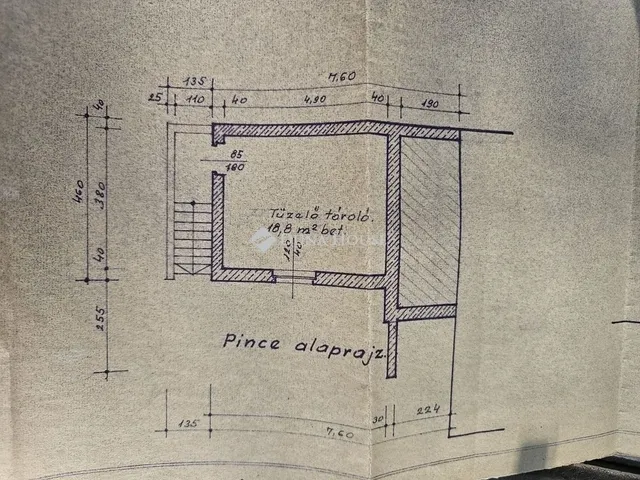 135
7,60
25
110
40
4,90
40
190
40
460
380
40
255
85
180
Tüzelő tároló.
18,8 m² bet.
120
40
Pince alaprajz.
135
7,60
30
224